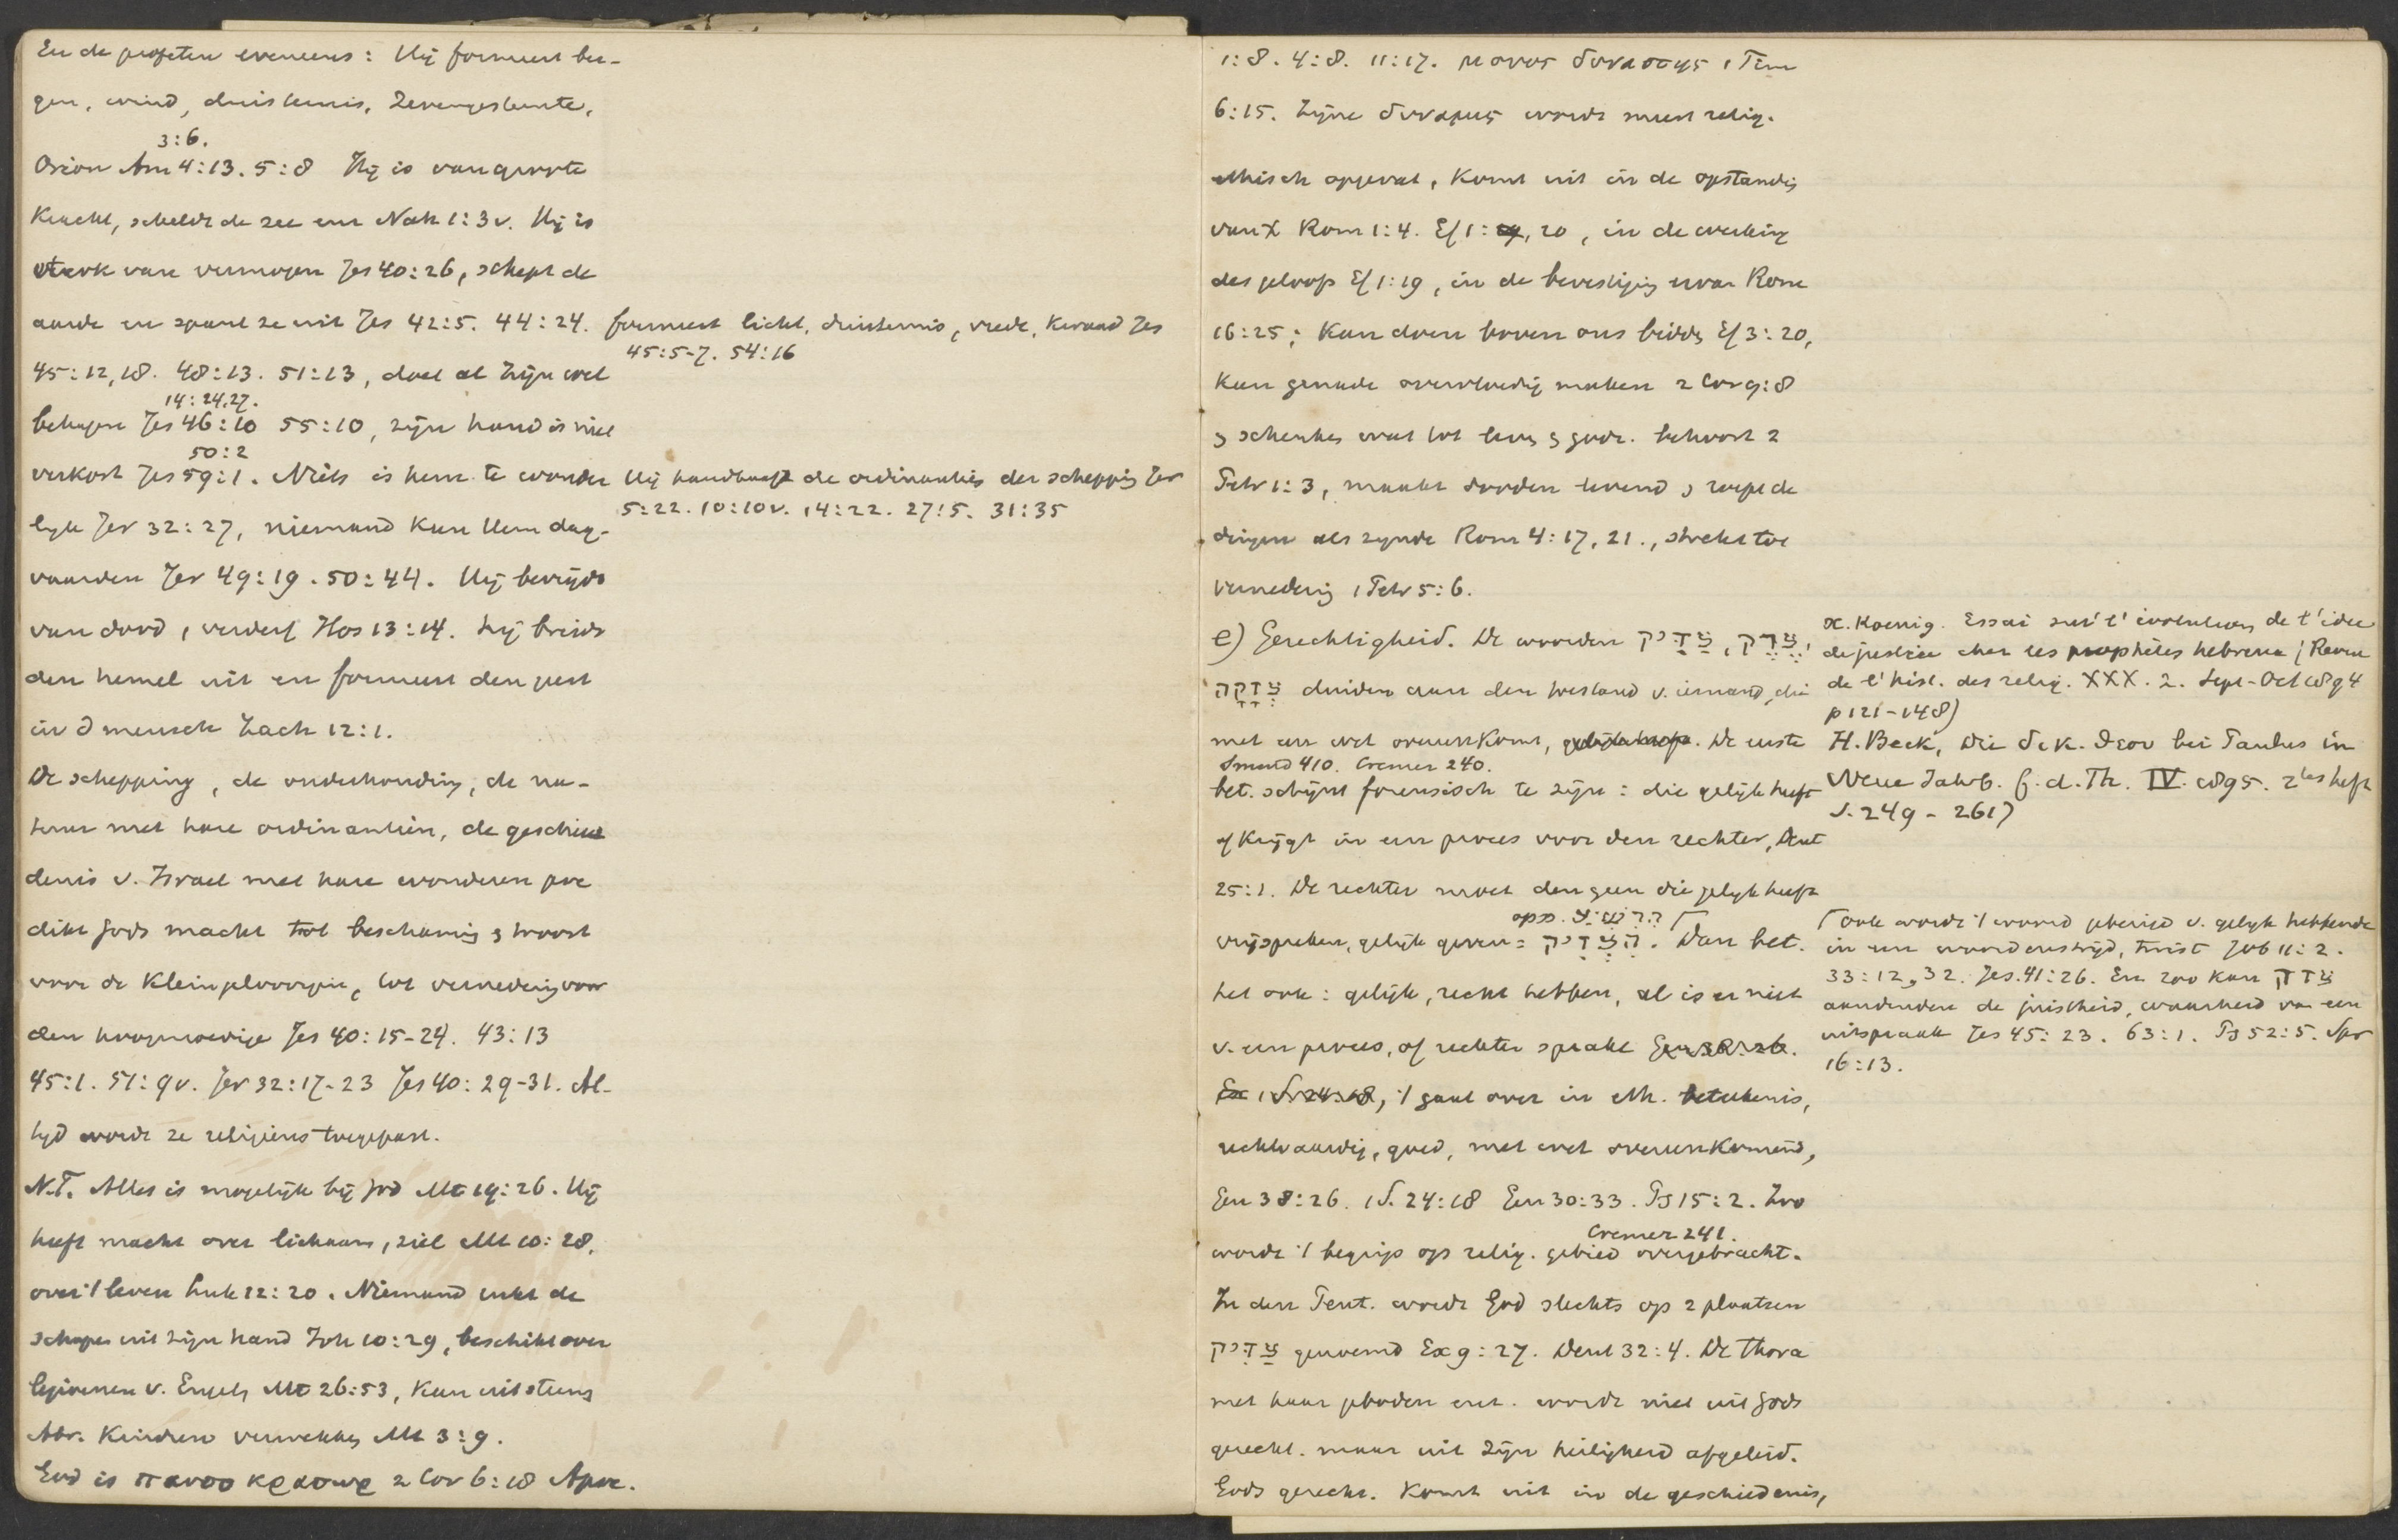 En de profeten eveneens: Hij formeert ber-
gen, wind, duisternis, Zevengesternte,
3:6.
Orion Am 4:13. 5:8 Hij is van groote
Kracht, scheldt de zee enz Nah 1:3v. Hij is
sterk van vermogen Jes 40:26, schept de
aarde en spant ze uit Jes 42:5. 44:24. formeert licht, duisternis, vrede, kwaad Jes
45:5-7. 54:16
45:12,18. 48:13. 51:13, doet al Zijn wel
14:24.27.
behagen Jes 46:10 55:10, zijn hand is niet
50:2
verkort Jes 59:1. Niets is hem te wonder Hij handhaaft de ordinanties der schepping Jer
5:22. 10:10v. 14:22. 27:5. 31:35
lijk Jer 32:27, niemand Kan Hem dag-
vaarden Jer 49:19. 50:44. Hij bevrijdt
van dood, verderf Hos 13:14. hij breidt
den hemel uit en formeert den geest
in d mensch Zach 12:1.
De schepping, de onderhouding, de na-
tuur met hare ordinantiën, de geschie
denis v. Israel met hare wonderen pre
dikt Gods macht tot beschaming & troost
voor de Kleingeloovigen, tot vernedering voor
den hoogmoedige Jes 40:15-24. 43:13
45:1. 51:9v. Jer 32:17-23 Jes 40:29-31. Al-
tijd wordt ze religieus toegepast.
N.T. Alles is mogelijk bij God Mt 19:26. Hij
heeft macht over lichaam, ziel Mt 10:28,
over 't leven Luk 12:20. Niemand rukt de
schapen uit zijn hand Joh 10:29, beschikt over
legioenen v. Engeln Mt 26:53, Kan uit steens
Abr. Kinderen verwekken Mt 3:9.
God is παντοκρατωρ 2 Cor 6:18 Apoc.
1:8. 4:8. 11:17. μονος δυναστης 1 Tim
6:15. Zijne δυναμις wordt meest relig.
ethisch opgevat, Komt uit in de opstandig
van X Rom 1:4. Ef 1: 20, in de werking
des geloofs Ef 1:19, in de bevestiging ervan Rom
16:25; Kan doen boven ons bidden Ef 3:20,
Kan genade overvloedig maken 2 Cor 9:8
& schenken wat tot leven & godz. behoort 2
Petr 1:3, maakt dooden levend & roept de
dingen als zijnde Rom 4:17, 21., strekt tot
vernedering 1 Petr 5:6.
e) Gerechtigheid. De woorden צַדִּיק, צֶדֶק,
צְדָקָה duiden aan den toestand v. iemand, die
met een wet overeenKomt, . De eerste
Smend 410. Cremer 240.
bet. schijnt forensisch te zijn: die gelijk heeft
of Krijgt in een proces voor den rechter, Deut
25:1. De rechter moet den geen die gelijk heeft
opp. הִרְשִׁיעַ ⌈
vrijspreken, gelijk geven = הִצְדִּיק. Dan bet.
het ook: gelijk, recht hebben, al is er niet
v. een proces, of rechter sprake Gen 38:26.
Ex 1 S. 24:18, 't gaat over in eth. beteekenis,
rechtvaardig, goed, met wet overeenKomend,
Gen 38:26. 1 S. 24:18 Gen 30:33. Ps 15:2. Zoo
Cremer 241.
wordt 't begrip op relig. gebied overgebracht.
In den Pent. wordt God slechts op 2 plaatsen
צַדִּיק genoemd Ex 9:27. Deut 32:4. De Thora
met haar geboden enz. wordt niet uit Gods
gerecht. maar uit Zijn heiligheid afgeleid.
Gods gerecht. Komt uit in de geschiedenis,
X. Koenig. Essai sur l'évolution de l'idée
de justice chez les prophètes hebreux (Revue
de l'hist. des relig. XXX. 2. Sept-Oct 1894
p 121-148)
H. Beck, Die δικ. θεου bei Paulus in
Neue Jahrb. f. d. Th. IV. 1895. 2tes heft
S. 249-261)
⌈ ook wordt 't woord gebezigd v. gelijk hebbende
in een woordenstrijd, twist Job 11:2.
33:12,32. Jes. 41:26. En zoo kan צדק
aanduiden de juistheid, waarheid van een
uitspraak Jes 45:23. 63:1. Ps 52:5. Spr
16:13.